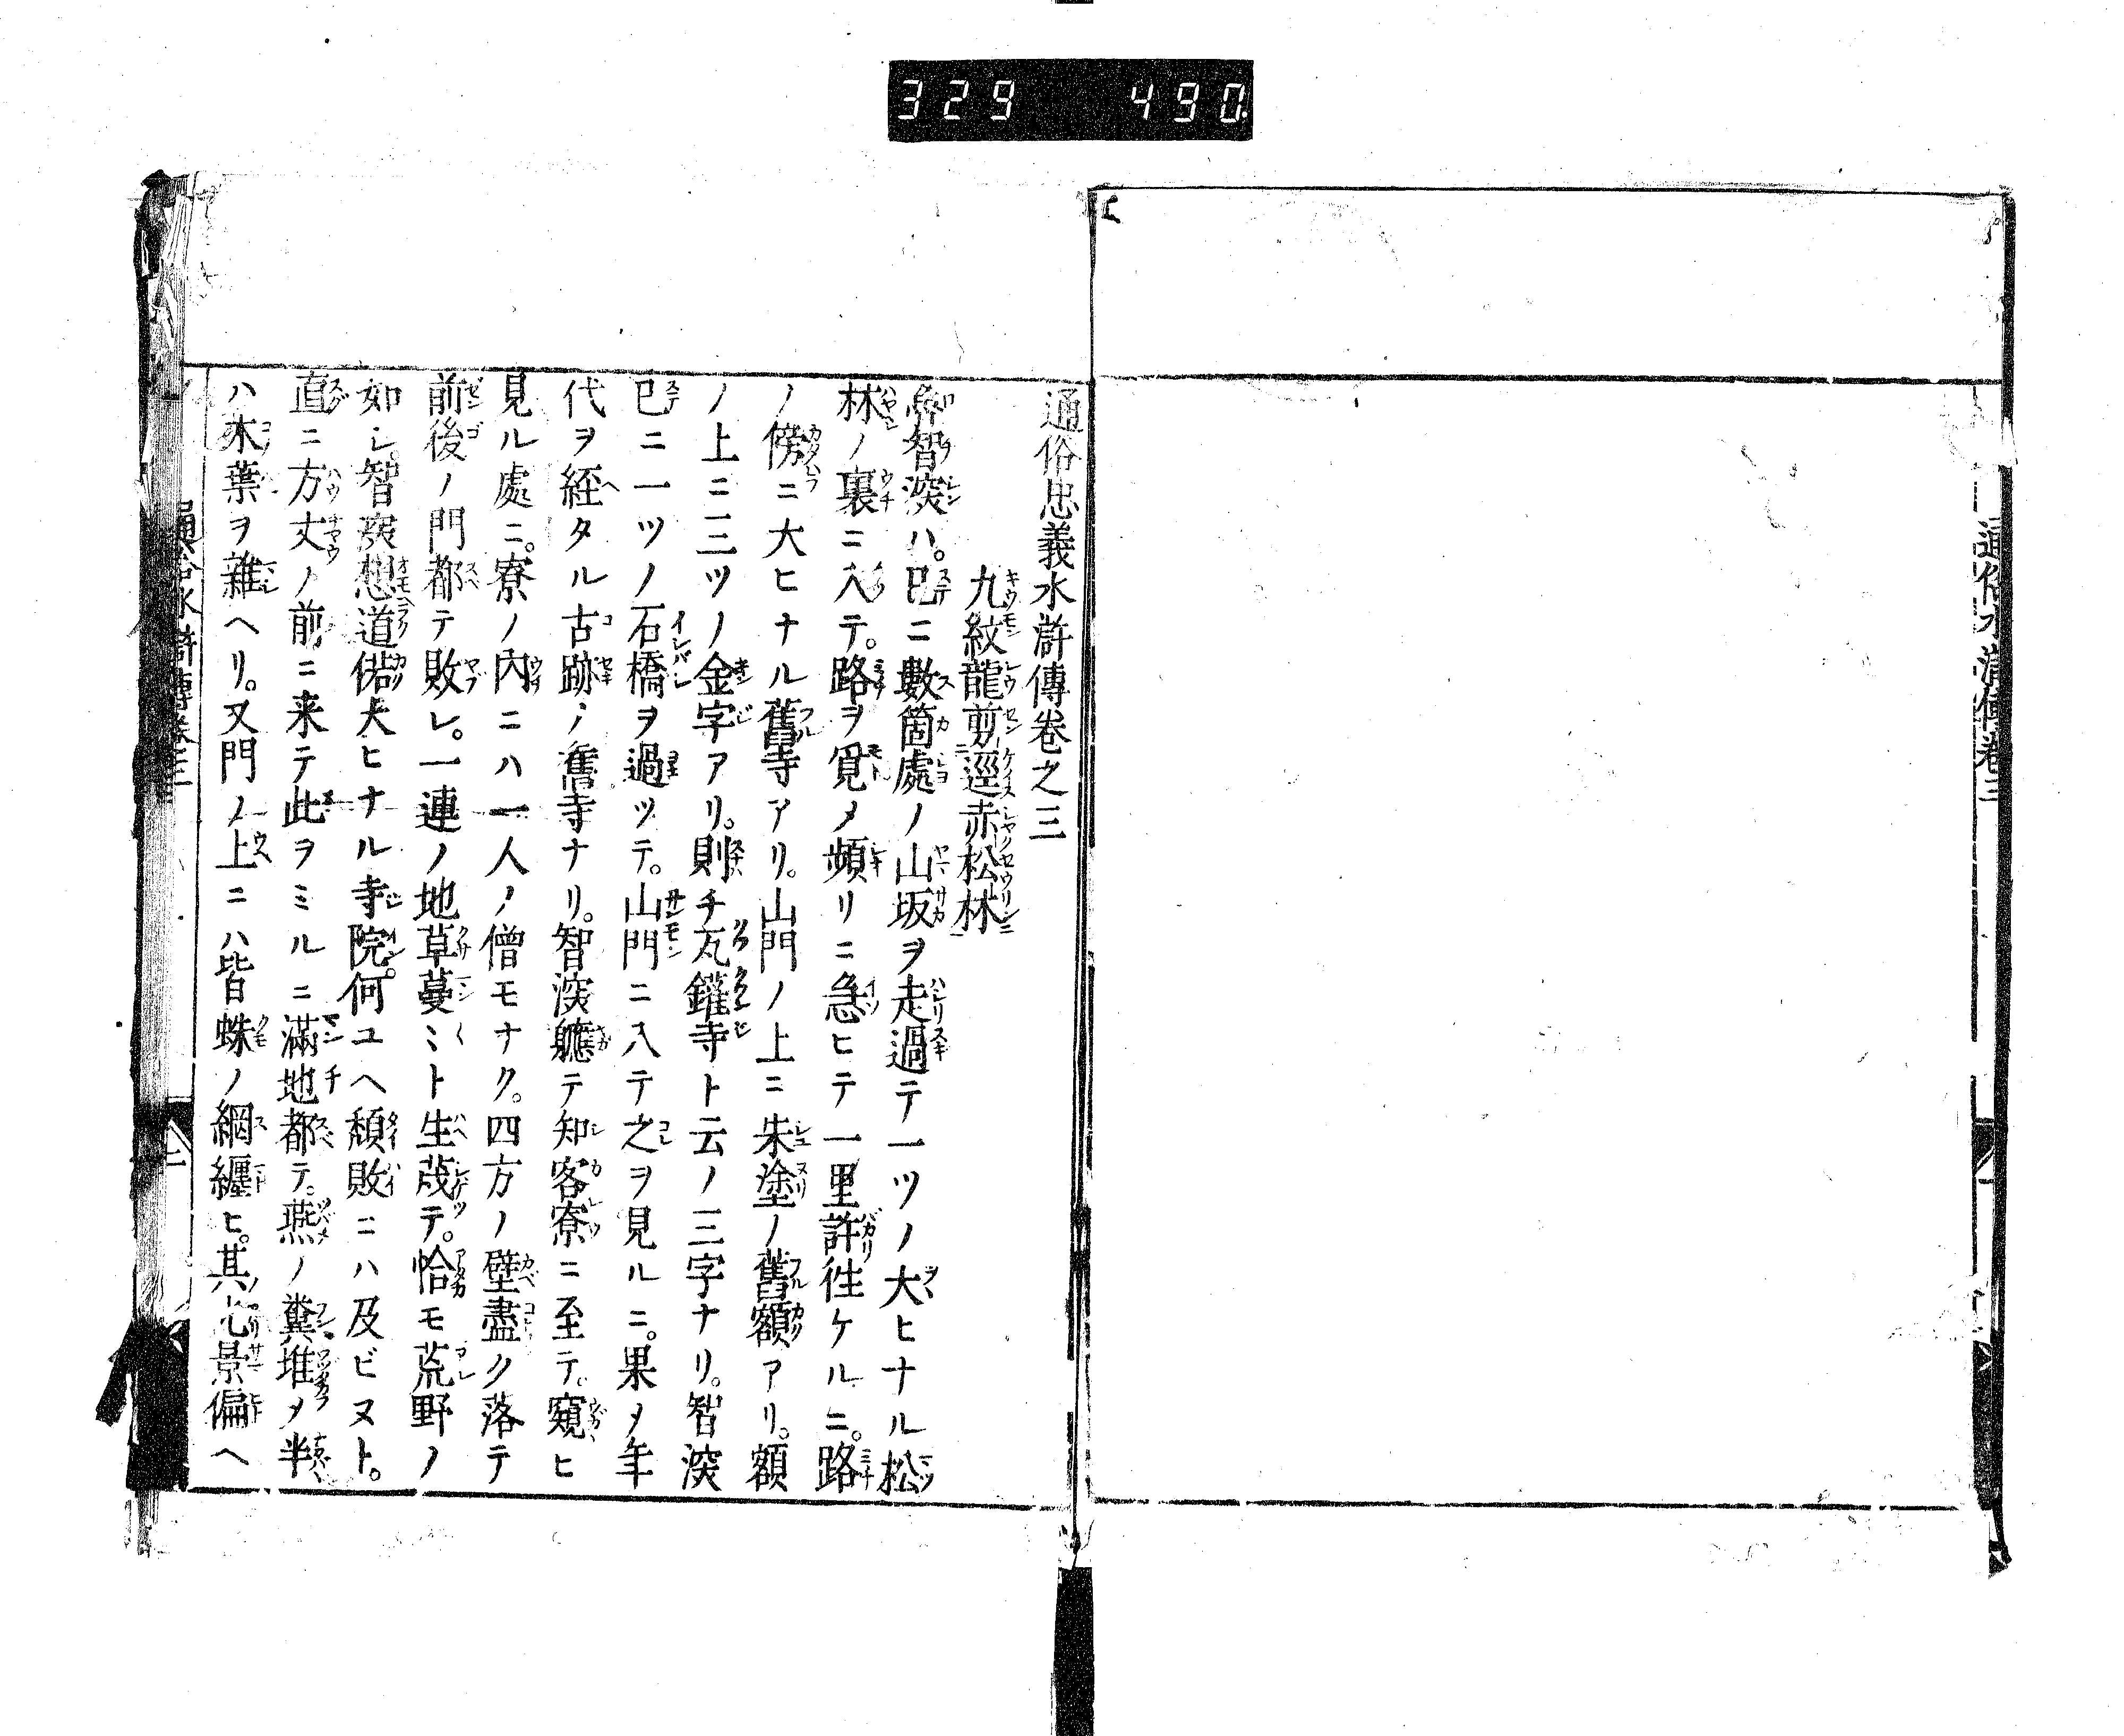 329 490
通俗忠義水滸傳卷之三
九紋龍剪逕赤松林
魯智深ハ。巳ニ數箇處ノ山坂ヲ走過テ一ツノ大ヒナル松
林ノ裏ニ入テ。路ヲ覓メ頻リニ急ヒテ一里許徃ケルニ。路
ノ傍ニ大ヒナル舊寺アリ。山門ノ上ニ朱塗ノ舊額アリ。額
ノ上ニ三ツノ金字アリ。則チ瓦鑵寺ト云ノ三字ナリ。智深
巳ニ一ツノ石橋ヲ過ツテ。山門ニ入テ之ヲ見ルニ。果メ年
代ヲ経タル古跡ノ舊寺ナリ。智深軈テ知客寮ニ至テ。窺ヒ
見ル處ニ。寮ノ内ニハ一人ノ僧モナク。四方ノ壁盡ク落テ
前後ノ門都テ敗レ。一連ノ地草蔓ミト生茂テ。恰モ荒野ノ
如シ。智深想道偌大ヒナル寺院。何ユヘ頽敗ニハ及ビヌト。
直ニ方丈ノ前ニ来テ此ヲミルニ滿地都テ。燕ノ糞堆メ半
ハ木葉ヲ雜ヘリ。又門ノ上ニハ皆蛛ノ網纏ヒ。其光景偏ヘ
通俗水滸傳卷三